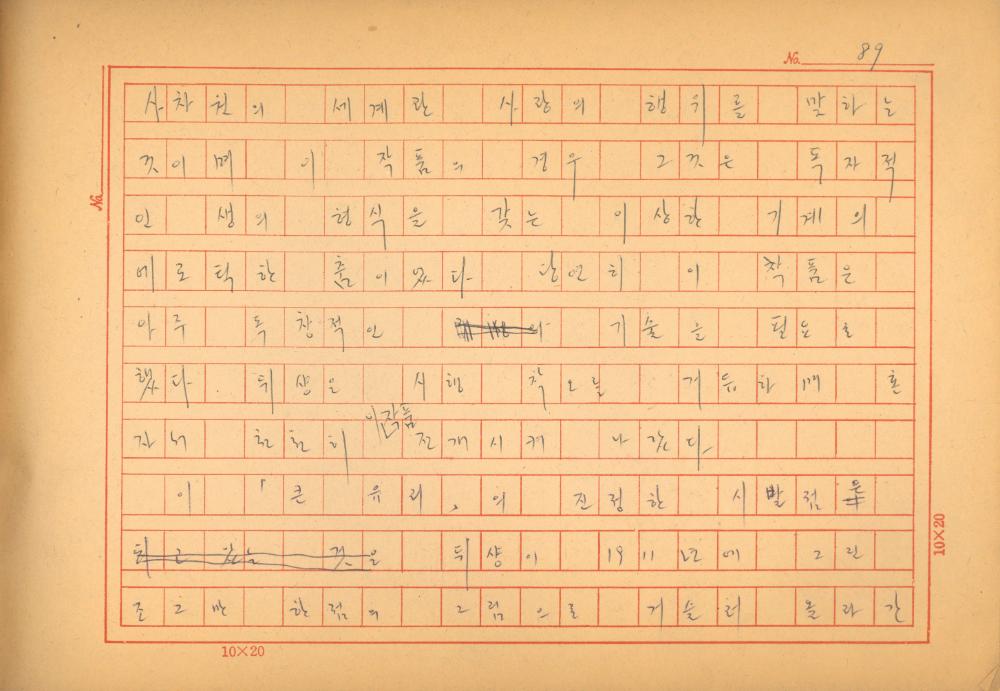 No. 89
No.
사차원의 세계란 사랑의 행위를 말하는
것이며 이 작품의 경우 그것은 독자적
인 생의 형식을 갖는 이상한 기계의
에로틱한 춤이었다. 당연히 이 작품은
아주 독창적인 기술을 필요로
했다. 뒤샹은 시행 착오를 거듭하며 혼
자서 천천히 이 작품 전개시켜 나갔다.
이 「큰 유리」의 진정한 시발점은
되고 있는 것을 뒤샹이 1911년에 그린
조그만 한점의 그림으로 거슬러 올라간
10×20
10×20